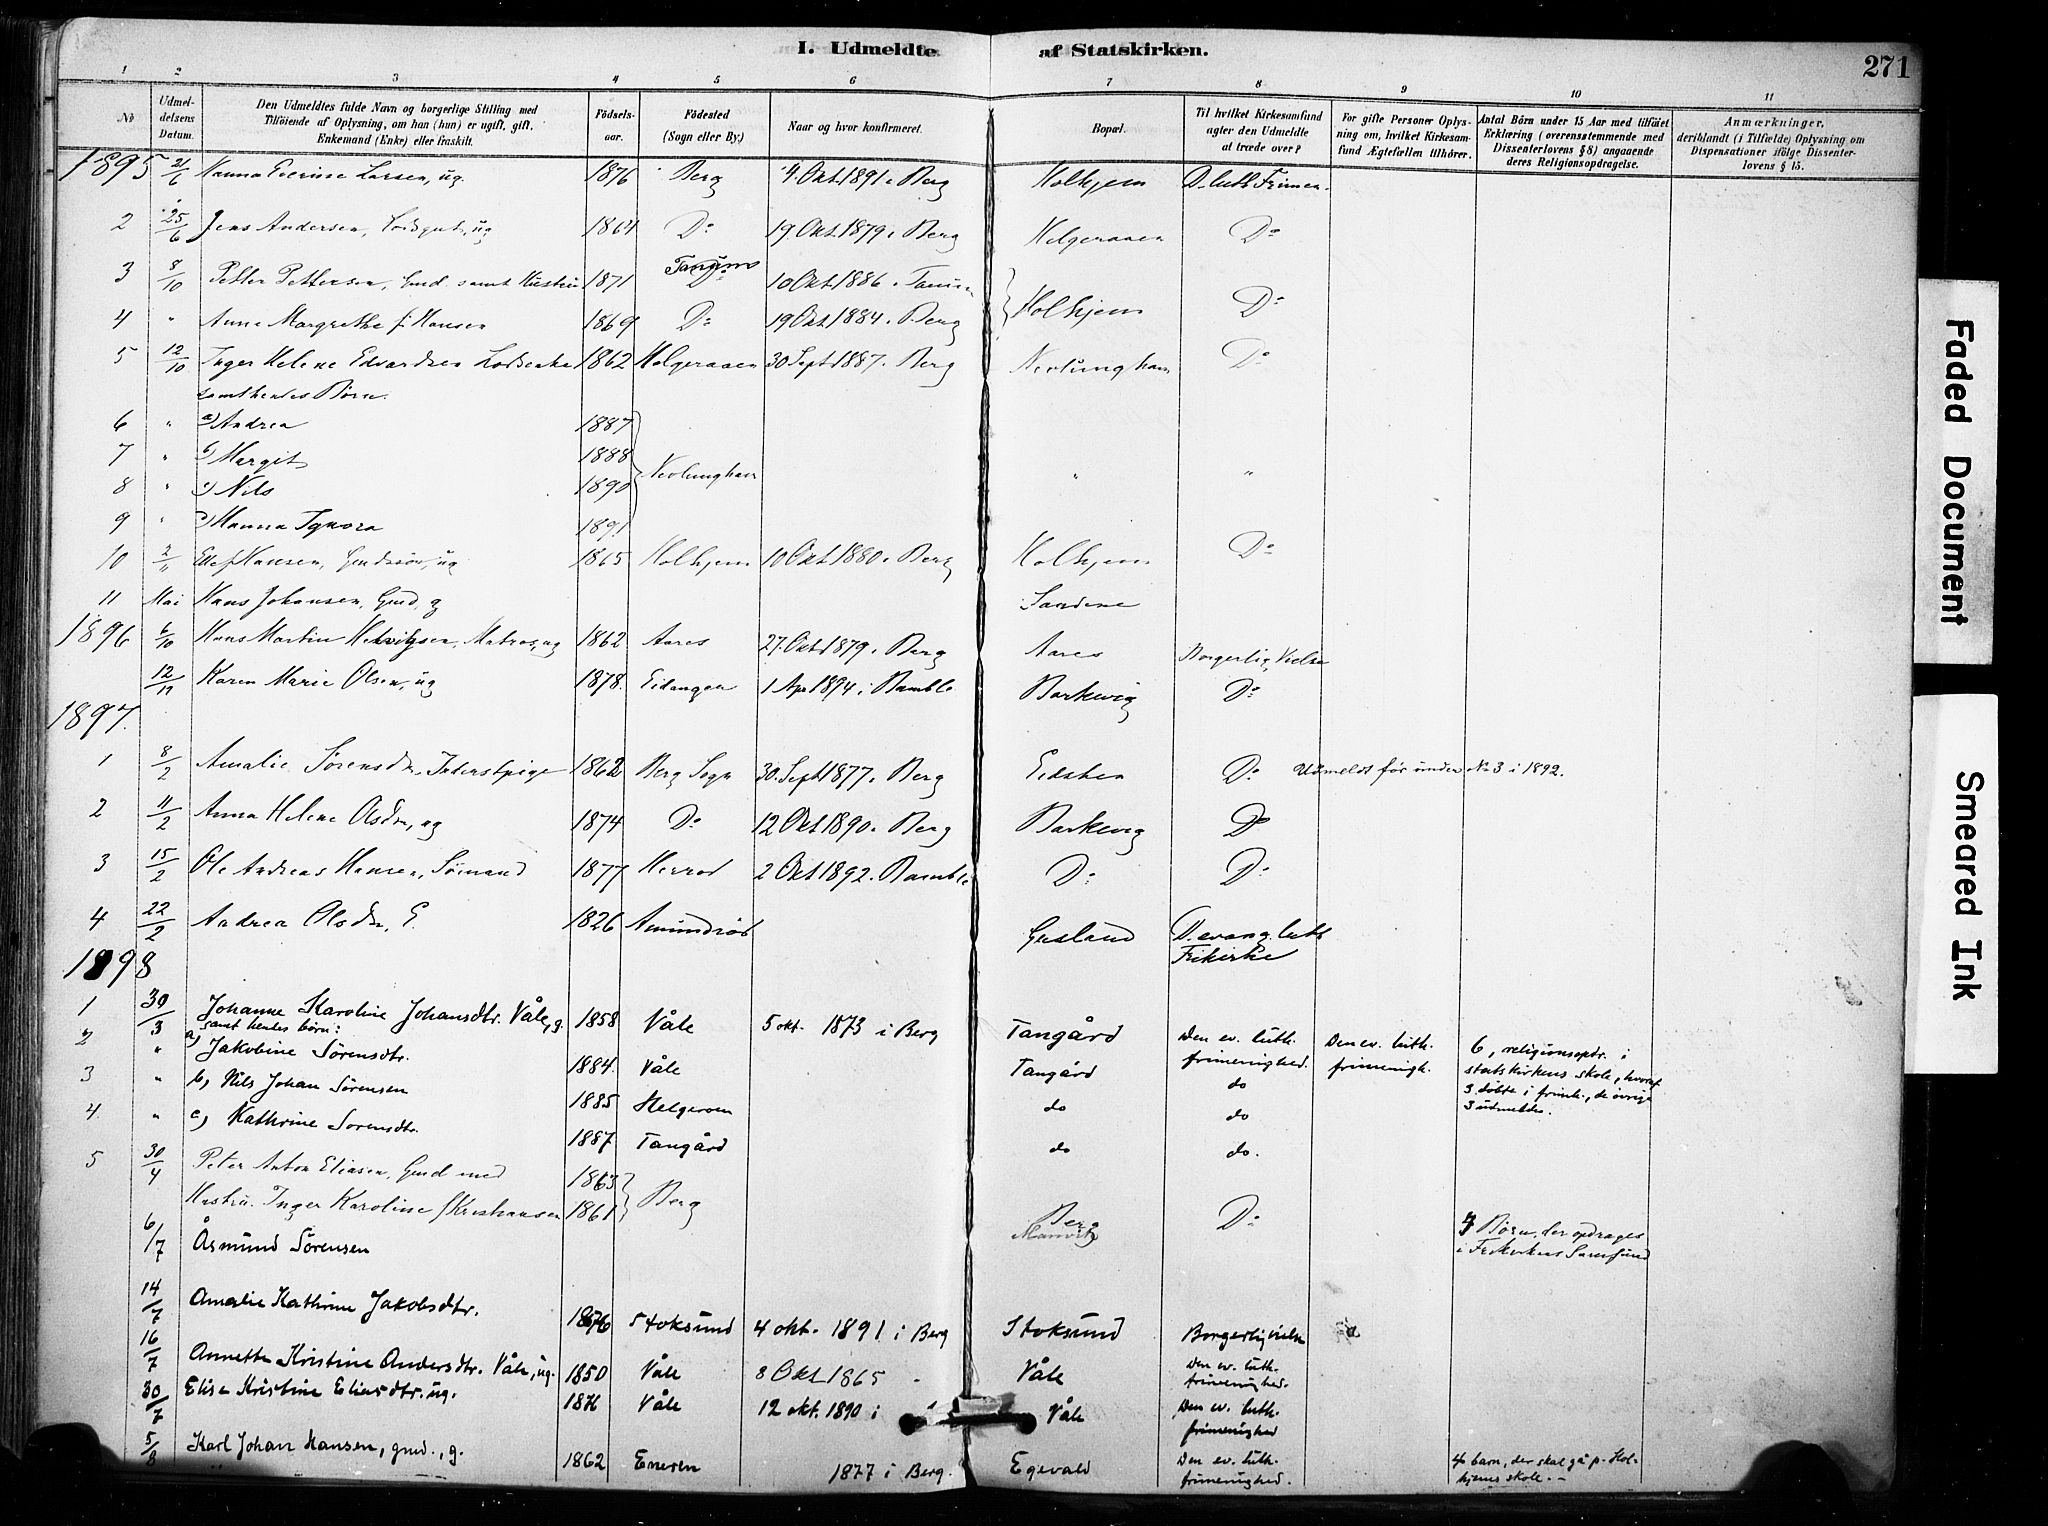 I. Udmeldte af Statskirken.
271
1 2 3 4 5 6 7 8 9 10 11
No
Udmel-
delsens
Datum.
Den Udmeldtes fulde Navn og borgerlige Stilling med
Tilföiende af Oplysning, om han (hun) er ugift, gift,
Enkemand (Enke) eller fraskilt.
Födsels-
aar.
Födested
(Sogn eller By.)
Naar og hvor konfirmeret.
Bopæl.
Til hvilket Kirkesamfund
agter den Udmeldte
at træde over?
For gifte Personer Oplys-
ning om, hvilket Kirkesam-
fund Ægtefællen tilhörer.
Antal Börn under 15 Aar med tilföiet
Erklæring (overensstemmende med
Dissenterlovens § 8) angaaende
deres Religionsopdragelse.
Anmærkninger,
deriblandt (i Tilfælde) Oplysning om
Dispensationer ifölge Dissenter-
lovens § 15.
1895 21/6 Hanna Larsen, ug. 1876 Berg 4. Okt 1891 i Berg Holhjem D. luth Frimen.
2 25/6 Jens Andersen, ug 1864 Do 19 Okt 1879 i Berg Helgeraaen Do
3 8/10 Petter Pettersen, Gmd. samt Hustru 1871 Tanum 10 Okt 1886 i Tanum
4 " Anne Margrethe f. Hansen 1869 Do 19 Okt 1884 i Berg Holhjem Do
5 12/10 Inger Helene Edvardsen Lodsenke 1862 Helgeraaen 30 Sept 1887 i Berg Nevlunghavn Do
samt hendes Børn.
6 " a) Andrea 1887
7 " Margit 1888 Nevlunghavn
8 " Nils 1890 " "
9 " Hanna 1891
10 2/11 Hansen, Gmdssøn, ug 1865 Holhjem 10 Okt 1880 i Berg Holhjem Do
11 Mai Hans Johansen, Gmd, g Sandene
1896 6/10 Hans Martin Matros, ug 1862 Aares 27. Okt 1879 i Berg Aares Borgerlig Vielse
12/12 Karen Marie Olsen, ug 1878. Eidanger 1 Apr 1894 i Bamble Barkevig Do
1897.
1 8/2 Amalie Sørensdr. 1862 Berg Sogn 30 Sept 1877 i Berg Eidsten Do Udmeldt før under No 3 i 1892.
2 11/2 Anna Helene Olsdr, ug 1874 Do 12 Okt 1890 i Berg Barkevig Do
3 15/2 Ole Andreas Hansen, Sømand 1877 2 Okt 1892. Bamble Do Do
4 22/2 Andrea Olsdr, E. 1826 Amundrød Gusland D. evang. luth
Frikirke
1898
1 30/3 Johanne Karoline Johansdtr. Våle, g. 1858 Våle 5 okt. 1873 i Berg Tangård Den ev. luth. frimenighed. Den ev. luth. frimenigh. 6, religionsopdr. i
samt hendes børn:
statskirkens skole, hvoraf
2 " a) Jakobine Sørensdtr. 1884. Våle Tangård do
3 døbte i frimh., de øvrige
3 udmeldes.
3 " b) Nils Johan Sørensen 1885 Helgeroen do do
4 " c) Kathrine Sorensdtr. 1887 Tangård do do.
5 30/4 Peter Anton Eliasen, Gmd med 1863
Hustru Inger Karoline f. Kristiansen 1861 Berg Berg Do 7 Børn, der opdrages
i Frikirkens Samfund
6/7 Åsmund Sörensen
14/7 Amalie Kathrine Jakobsdtr. 1876 Stoksund 4 okt. 1891 i Berg Stoksund Borgerlig vielse
16/7 Annette Kristine Andersdtr. Våle, ug. 1850 Våle 8 Okt 1865 Våle Den ev. luth.
frimenighed.
30/7 Elise Kristine Eliasdtr. ug. 1876 Våle 12 okt. 1890 i Våle Den ev. luth.
frimenighed
5/8 Karl Johan Hansen, gmd., g. 1862 Eneren 1877 i Berg. Egevald Den ev. luth.
frimenighed. 4 barn, der skal gå p. Hol-
hjems skole. -
Faded Document
Smeared Ink